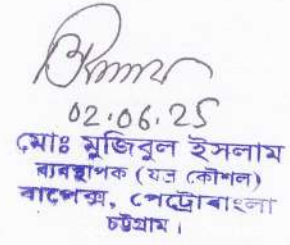 02.06.25
মোঃ মুজিবুল ইসলাম
ব্যবস্থাপক (যন্ত্র কৌশল)
বাপেক্স, পেট্রোবাংলা
চট্টগ্রাম।